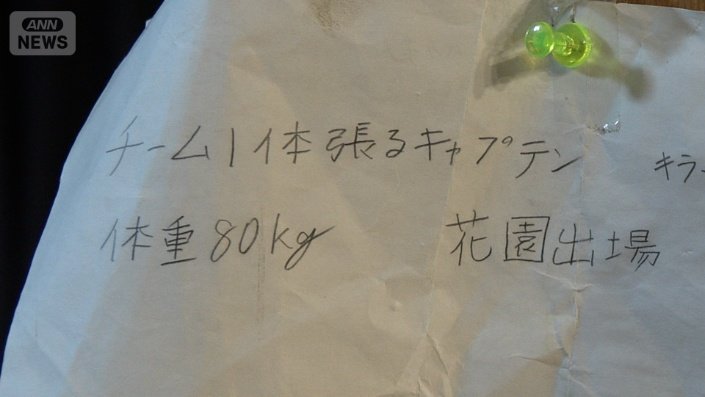 ANN
NEWS
チーム1体張るキャプテン
キラ
体重80kg
花園出場